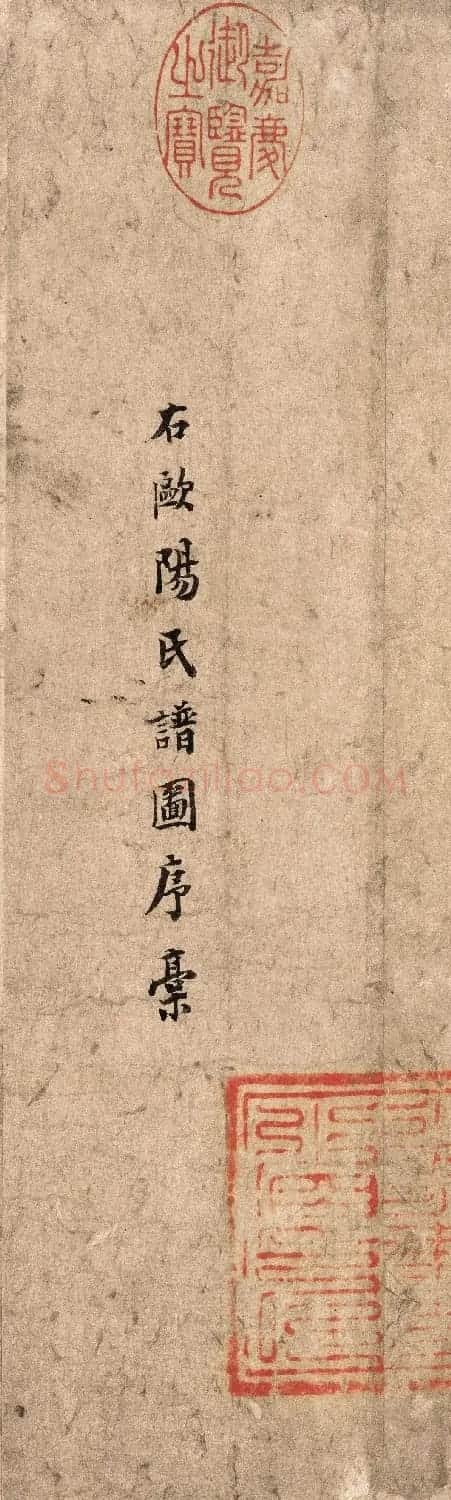 嘉慶
御覽
之寶
右歐陽氏譜圖序稾